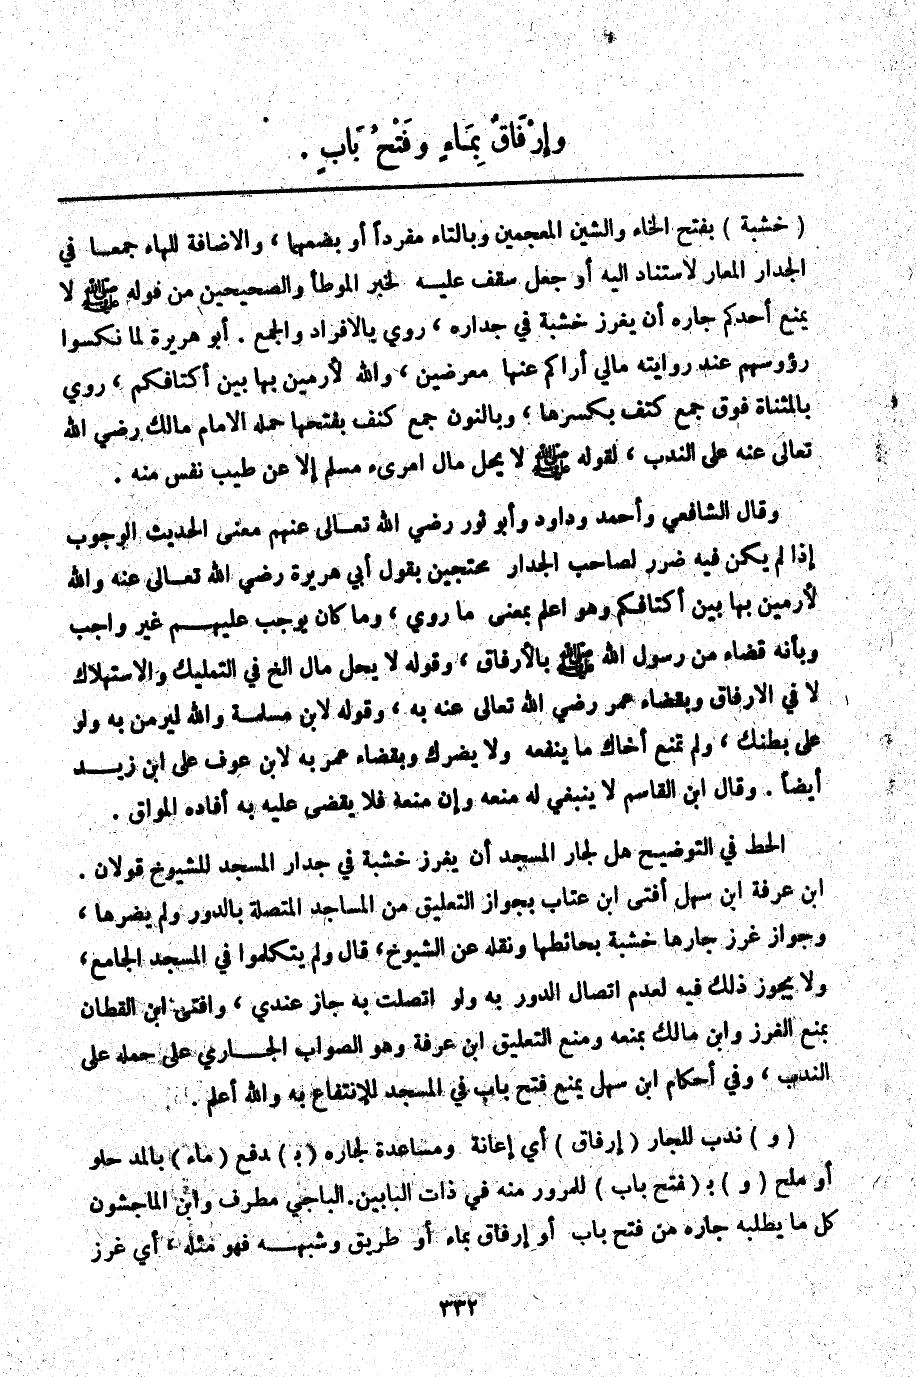 وإرْفَاقٌ بِمَاءٍ وفَتْحُ بَابٍ .
( خشبة ) بفتح الخاء والشين المعجمين وبالتاء مفرداً أو بضمها ، والاضافة للهاء جمعـا في
الجدار المعار لاستناد اليه أو جعل سقف عليـه لخبر الموطأ والصحيحين من قوله ﷺ لا
يمنع أحدكم جاره أن يغرز خشبة في جداره ، روي بالافراد والجمع . أبو هريرة لما نكسوا
رؤوسهم عند روايته مالي أراكم عنها معرضين ، والله لأرمين بها بين أكتافكم ، روي
بالمثناة فوق جمع كتف بكسرها ، وبالنون جمع كنف بفتحها حمله الامام مالك رضي الله
تعالى عنه على الندب ، لقوله ﷺ لا يحل مال امرىء مسلم إلا عن طيب نفس منه .
وقال الشافعي وأحمد وداود وأبو ثور رضي الله تعـالى عنهم معنى الحديث الوجوب
إذا لم يكن فيه ضرر لصاحب الجدار محتجين بقول أبي هريرة رضي الله تعـالى عنه والله
لأرمين بها بين أكتافكم وهو اعلم بمعنى ما روي ، وما كان يوجب عليهـــم غير واجب
وبأنه قضاء من رسول الله ﷺ بالأرفاق ، وقوله لا يحل مال الخ في التمليك والاستهلاك
لا في الارفاق وبقضاء عمر رضي الله تعالى عنه به ، وقوله لابن مسلمـة والله ليرمن به ولو
على بطنك ، ولم تمنع أخاك ما ينفعه ولا يضرك وبقضاء عمر به لابن عوف على ابن زيـــد
أيضاً . وقال ابن القاسم لا ينبغي له منعه وإن منعة فلا يقضى عليه به أفاده المواق .
الحط في التوضيـح هل لجار المسجد أن يغرز خشبة في جدار المسجد للشيوخ قولان .
ابن عرفة ابن سهل أفتى ابن عتاب بجواز التعليق من المساجد المتصلة بالدور ولم يضرها ،
وجواز غرز جارها خشبة بحائطها ونقله عن الشيوخ، قال ولم يتكلموا في المسجد الجامع،
ولا يجوز ذلك فيه لعدم اتصال الدور به ولو اتصلت به جاز عندي ، وافتى ابن القطان
بمنع الغرز وابن مالك بمنعه ومنع التعليق ابن عرفة وهو الصواب الجـــاري على حمله على
الندب ، وفي أحكام ابن سهل يمنع فتح باب في المسجد للإنتفاع به والله أعلم .
( و ) ندب للجار ( إرفاق ) أي إعانة ومساعدة لجاره ( بـ ) ـدفع ( ماء ) بالمد حلو
أو ملح ( و ) بـ ( فتح باب ) للمرور منه في ذات البابين. الباجي مطرف وابن الماجشون
كل ما يطلبه جاره من فتح باب أو إرفاق بماء أو طريق وشبهـــه فهو مثله ، أي غرز
٣٣٢